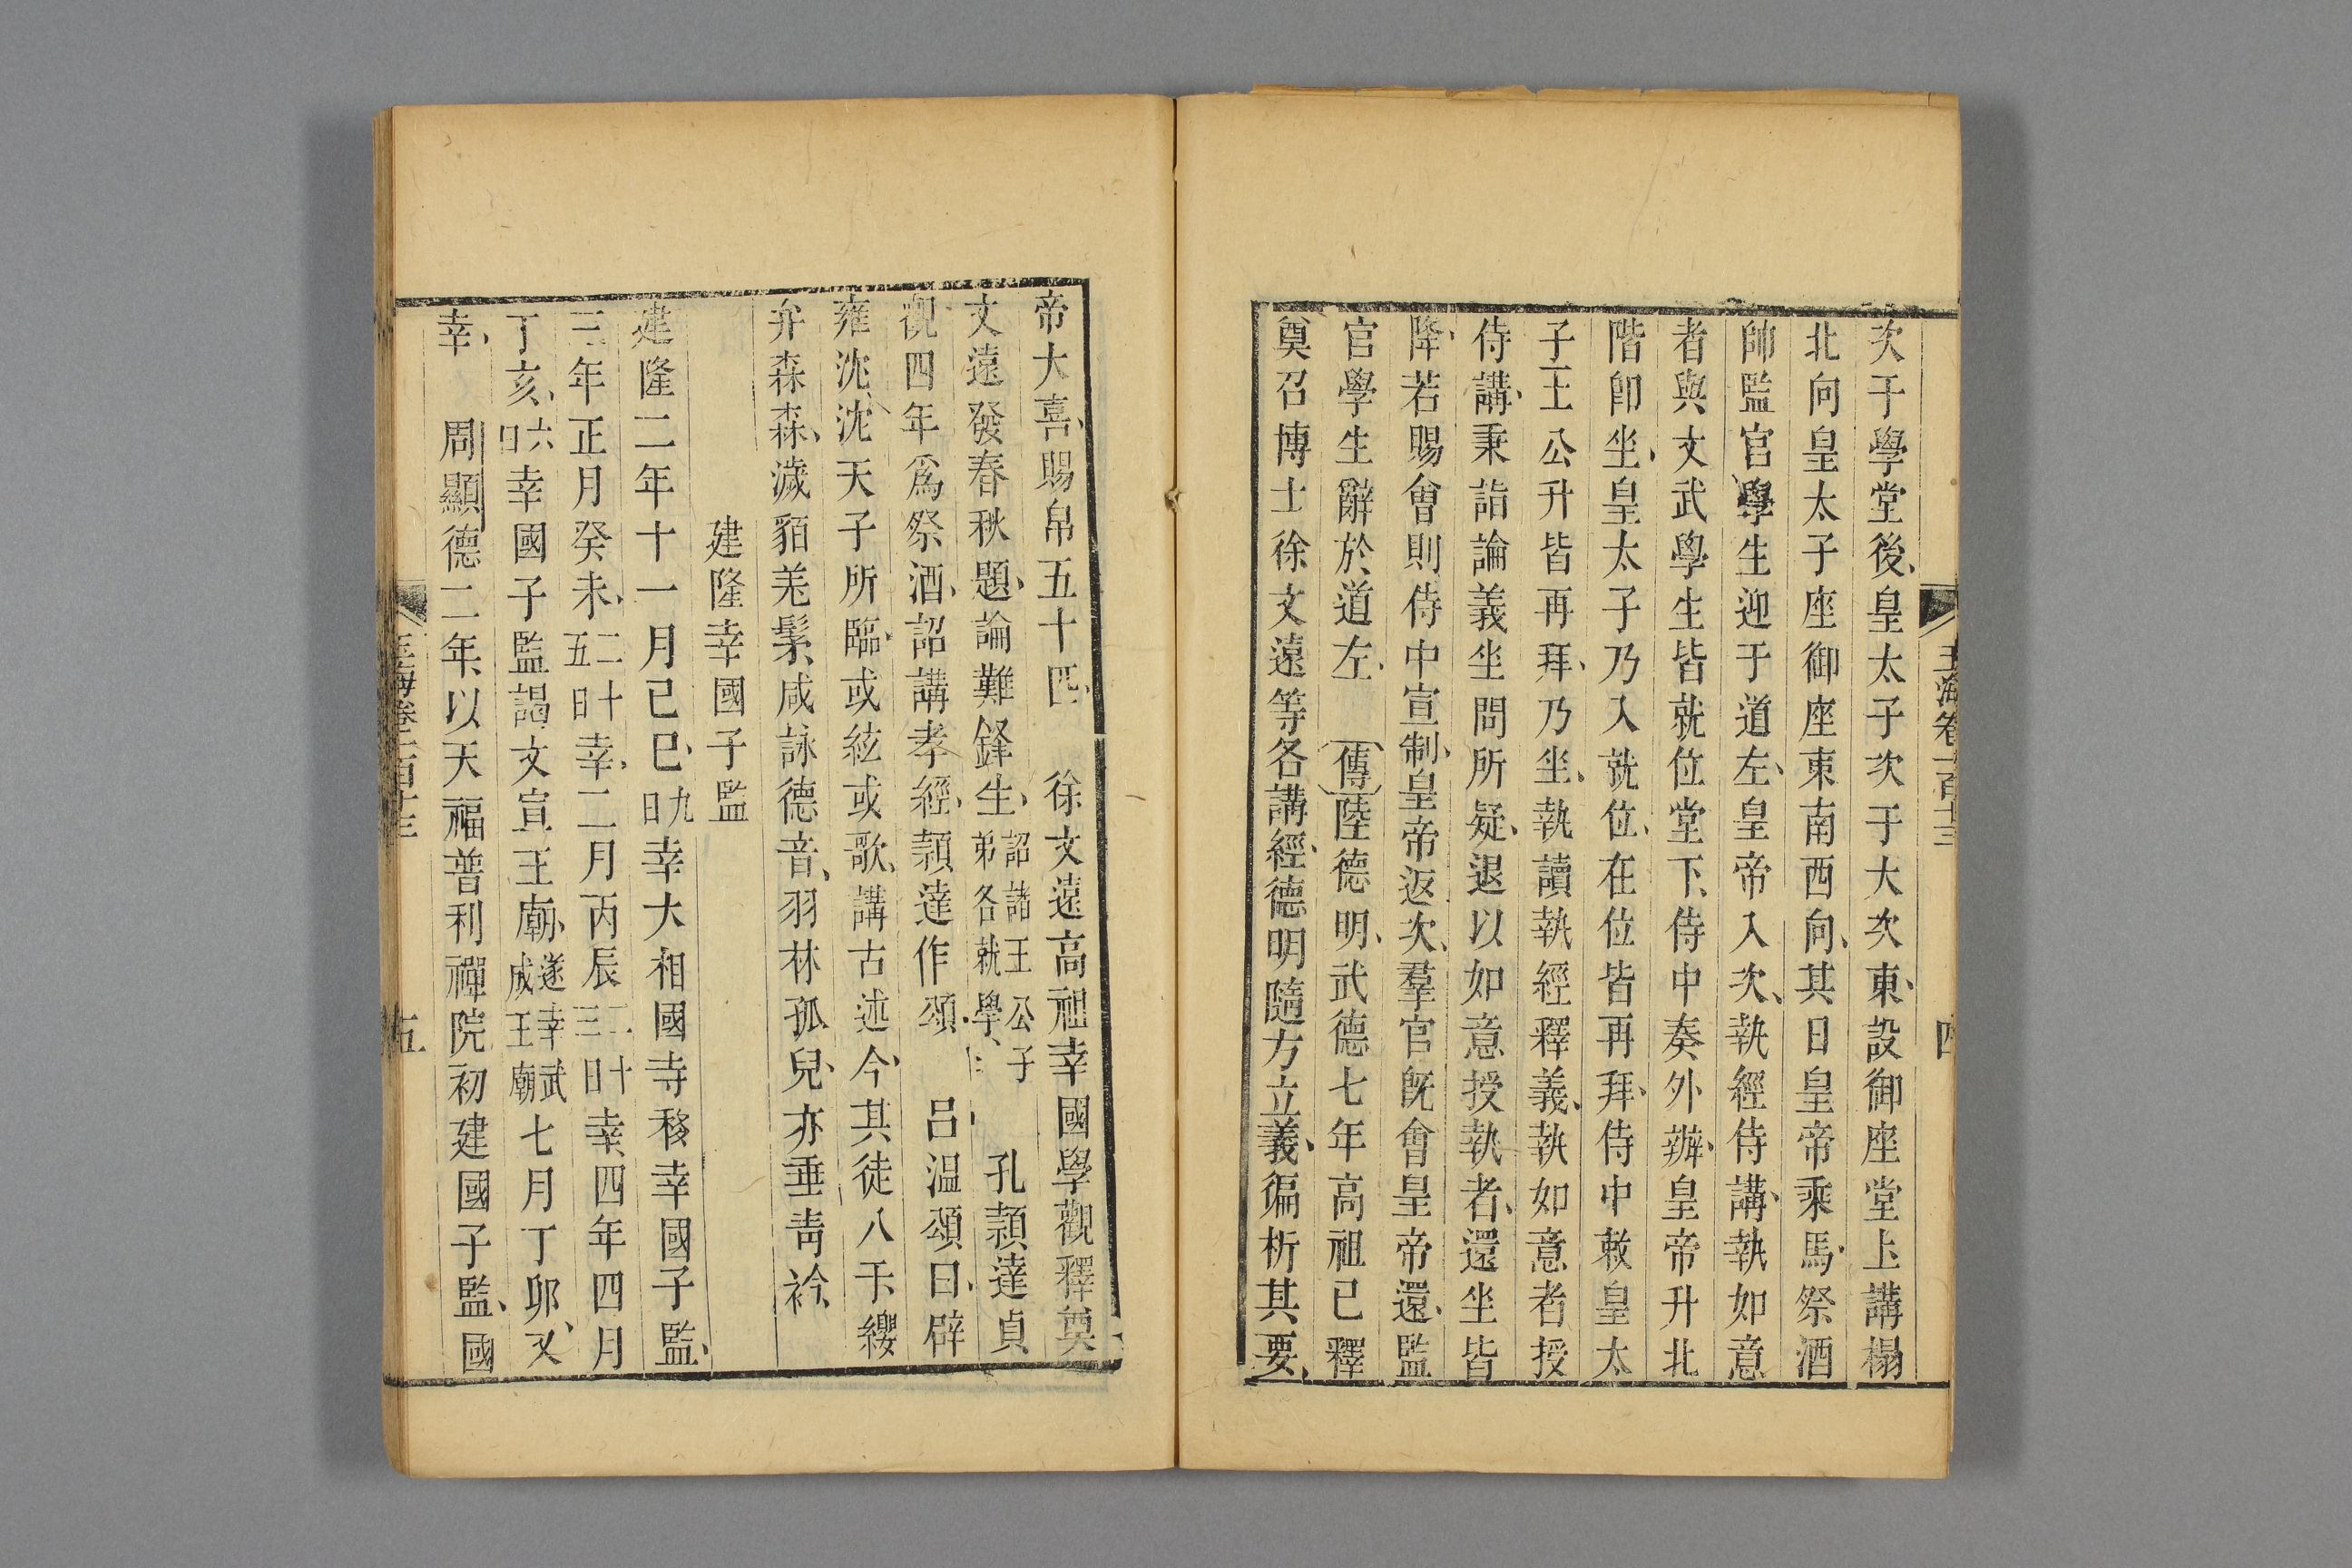 玉海卷一百十三
四
次于學堂後、皇太子次于大次東、設御座堂上講榻
北向皇太子座御座東南西向、其日皇帝乘馬、祭酒
帥監官、學生迎于道左、皇帝入次、執經侍講、執如意
者與文武學生皆就位堂下、侍中奏外辦、皇帝升北
階卽坐、皇太子乃入就位、在位皆再拜、侍中敕皇太
子王公升皆再拜、乃坐、執讀執經釋義、執如意者授
侍講、秉詣論義坐問所疑、退以如意授執者、還坐皆
降、若賜會則侍中宣制、皇帝返次、羣官旣會皇帝還、監
官學生辭於道左、　傳陸德明、武德七年高祖已釋
奠召博士徐文遠等各講經、德明隨方立義、徧析其要、
帝大喜、賜帛五十匹、　徐文遠高祖幸國學觀釋奠
文遠發春秋題、論難鋒生、詔諸王公子弟各就學、　孔穎達貞
觀四年爲祭酒、詔講孝經、穎達作頌、　呂溫頌曰、辟
雍沈、沈沈天子所臨、或絃或歌、講古述今、其徒八千纓
弁森森、濊貊羌髳、咸詠德音、羽林孤兒、亦垂靑衿、
建隆幸國子監
建隆二年十一月己巳、九日幸大相國寺移幸國子監、
三年正月癸未、二十五日幸、二月丙辰二十三日幸、四年四月
丁亥、六日幸國子監謁文宣王廟、遂幸武成王廟七月丁卯、又
幸、　周顯德二年、以天福普利禪院初建國子監、國
玉海卷一百十三
五